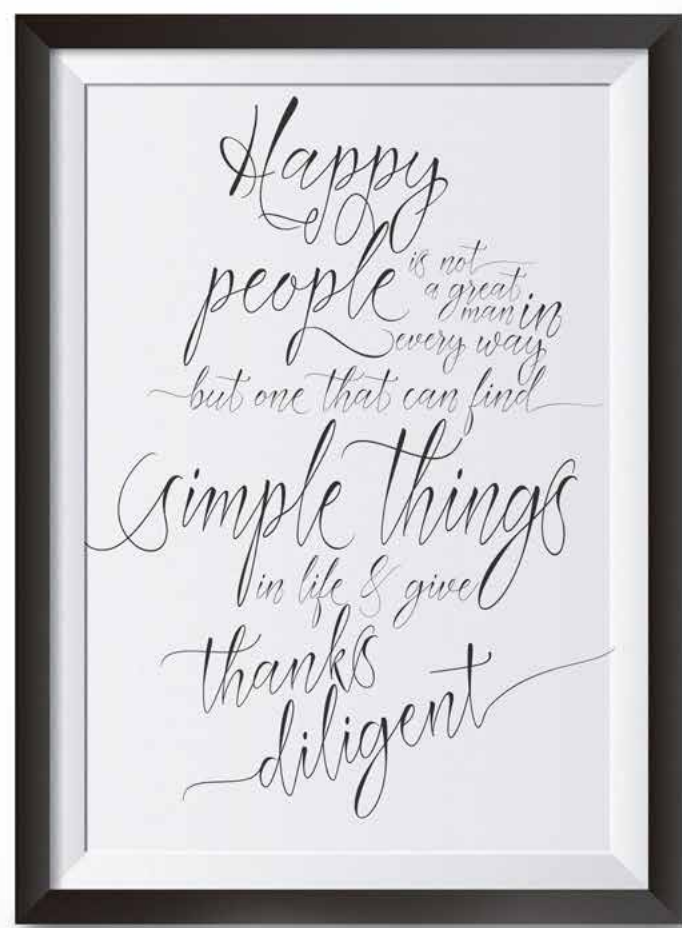 Happy
people is not
a great
man in
every way
but one that can find
simple things
in life & give
thanks
diligent